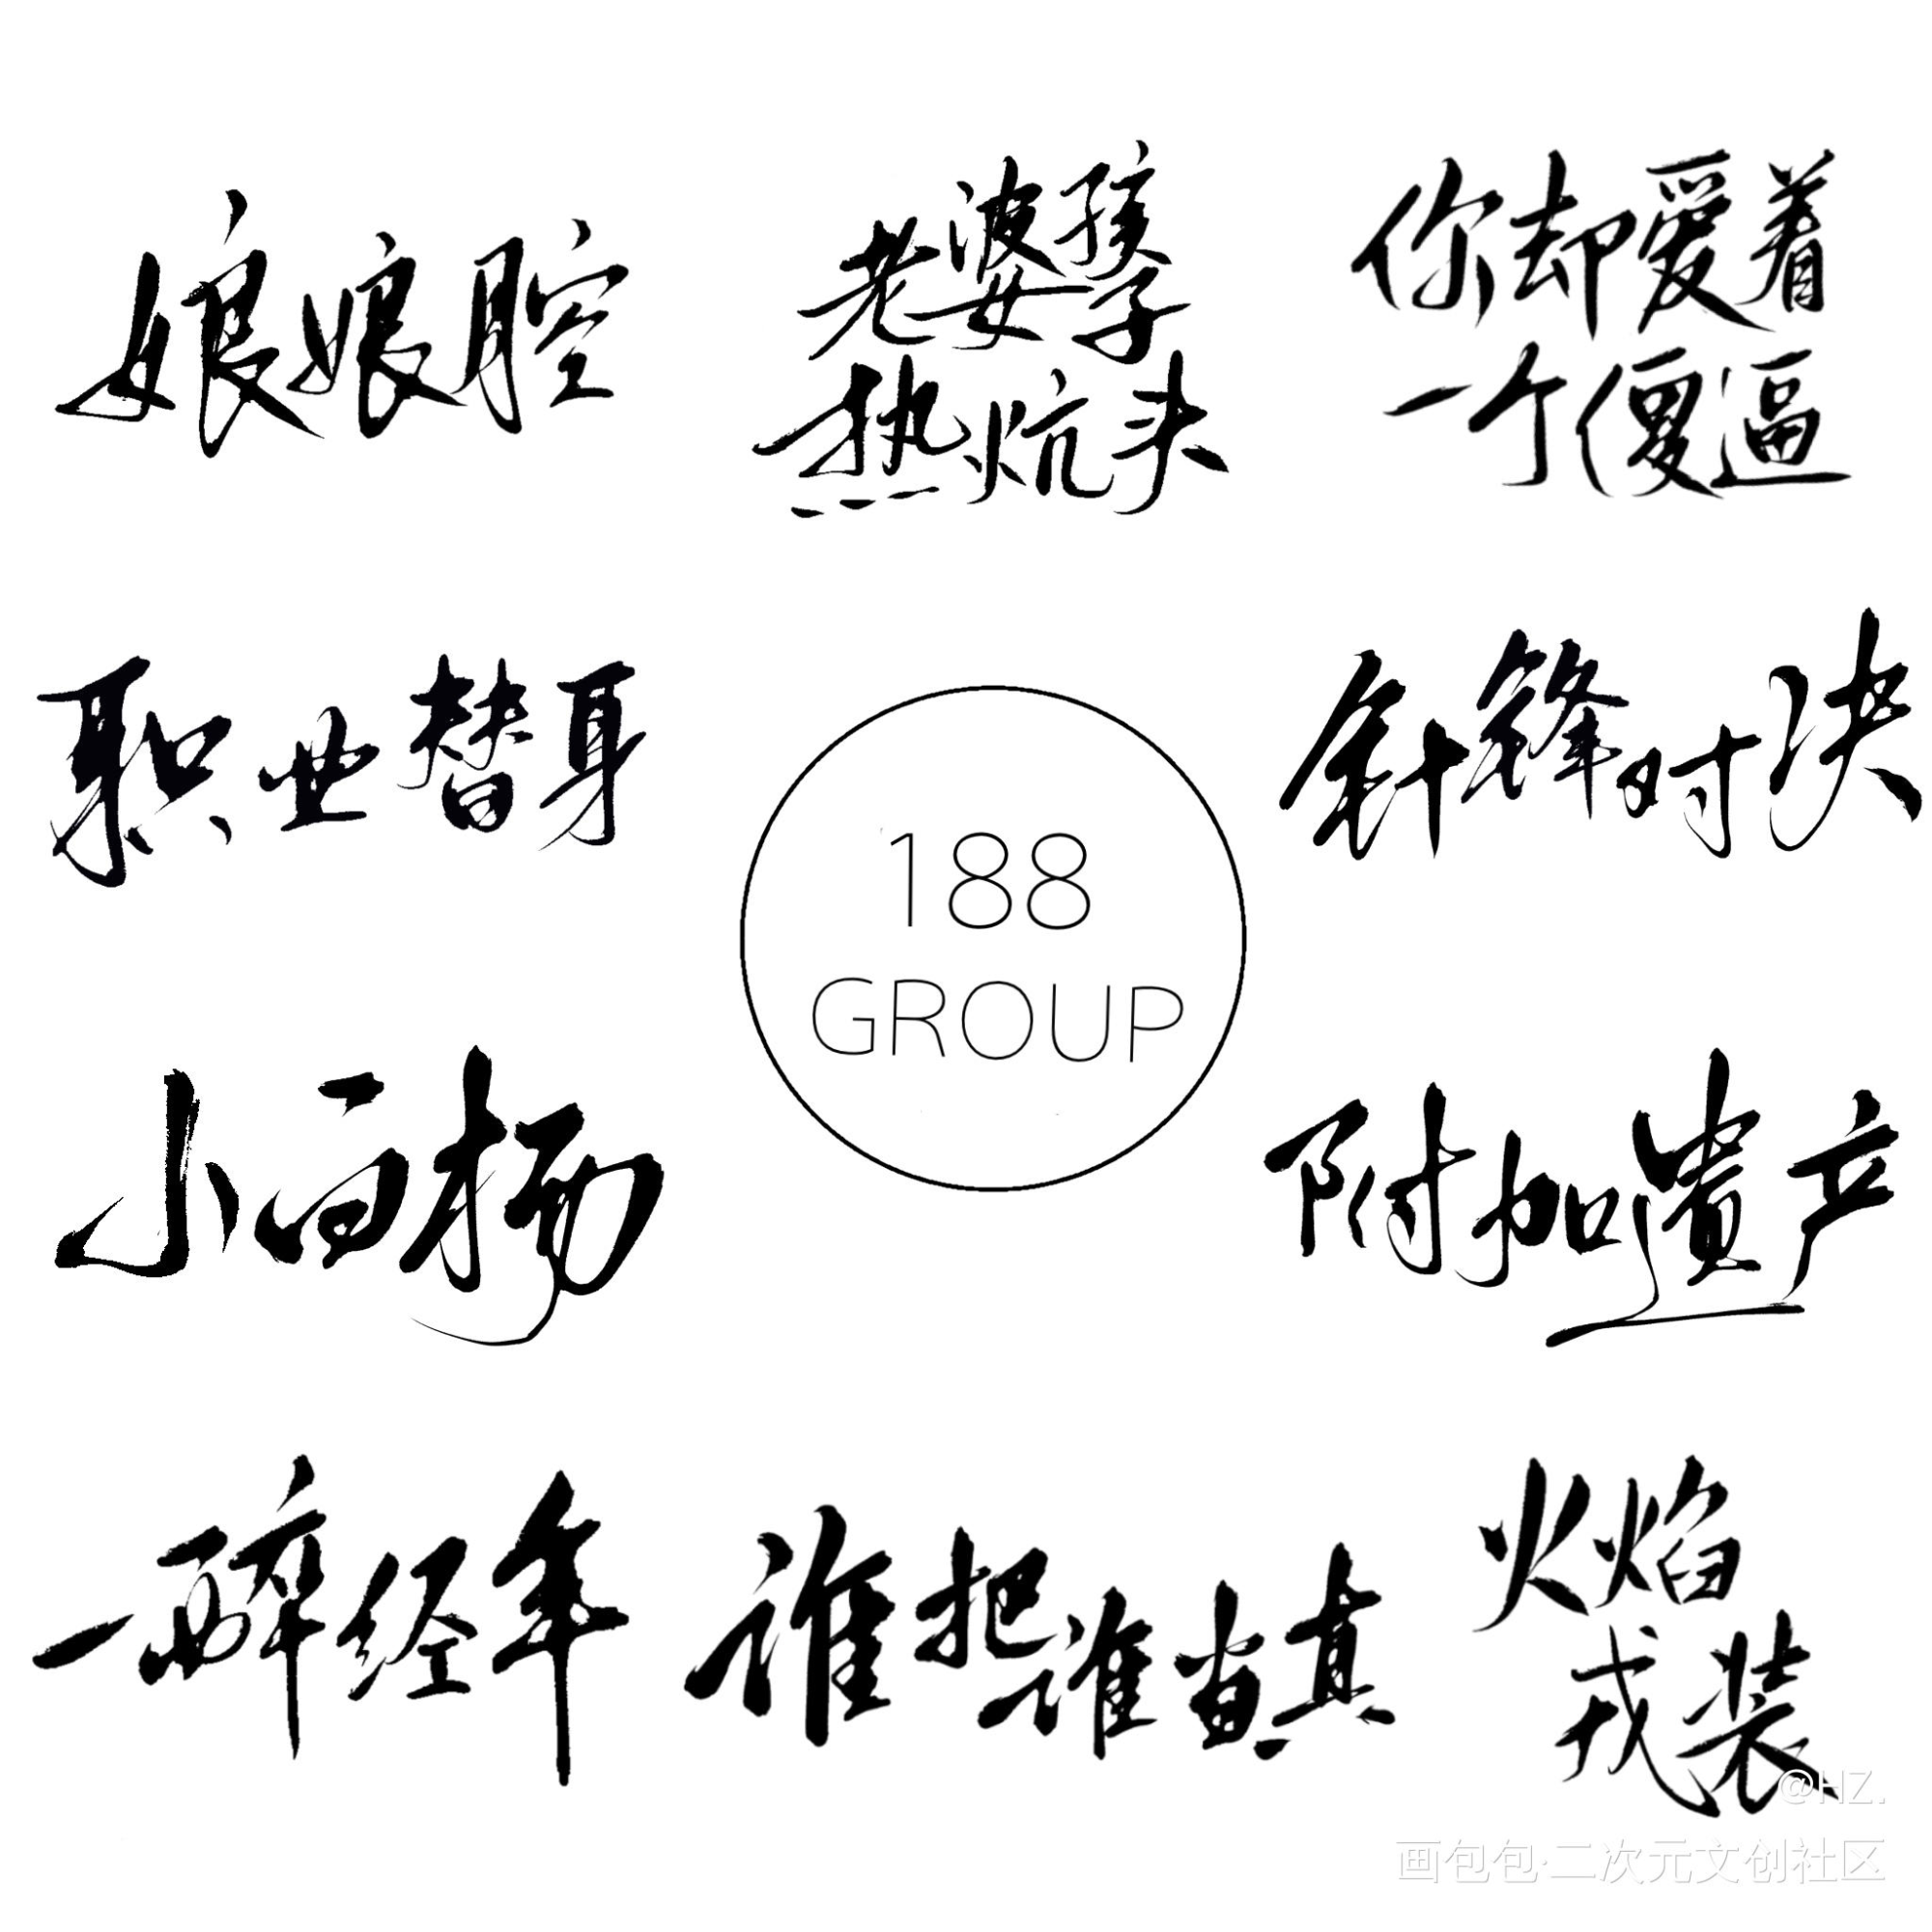 娘娘腔
老婆孩子
热炕头
你却爱着
一个傻逼
职业替身
针锋对决
188
GROUP
小白杨
附加遗产
一醉经年
谁把谁当真
火焰
戎装
@HZ.
画包包·二次元文创社区